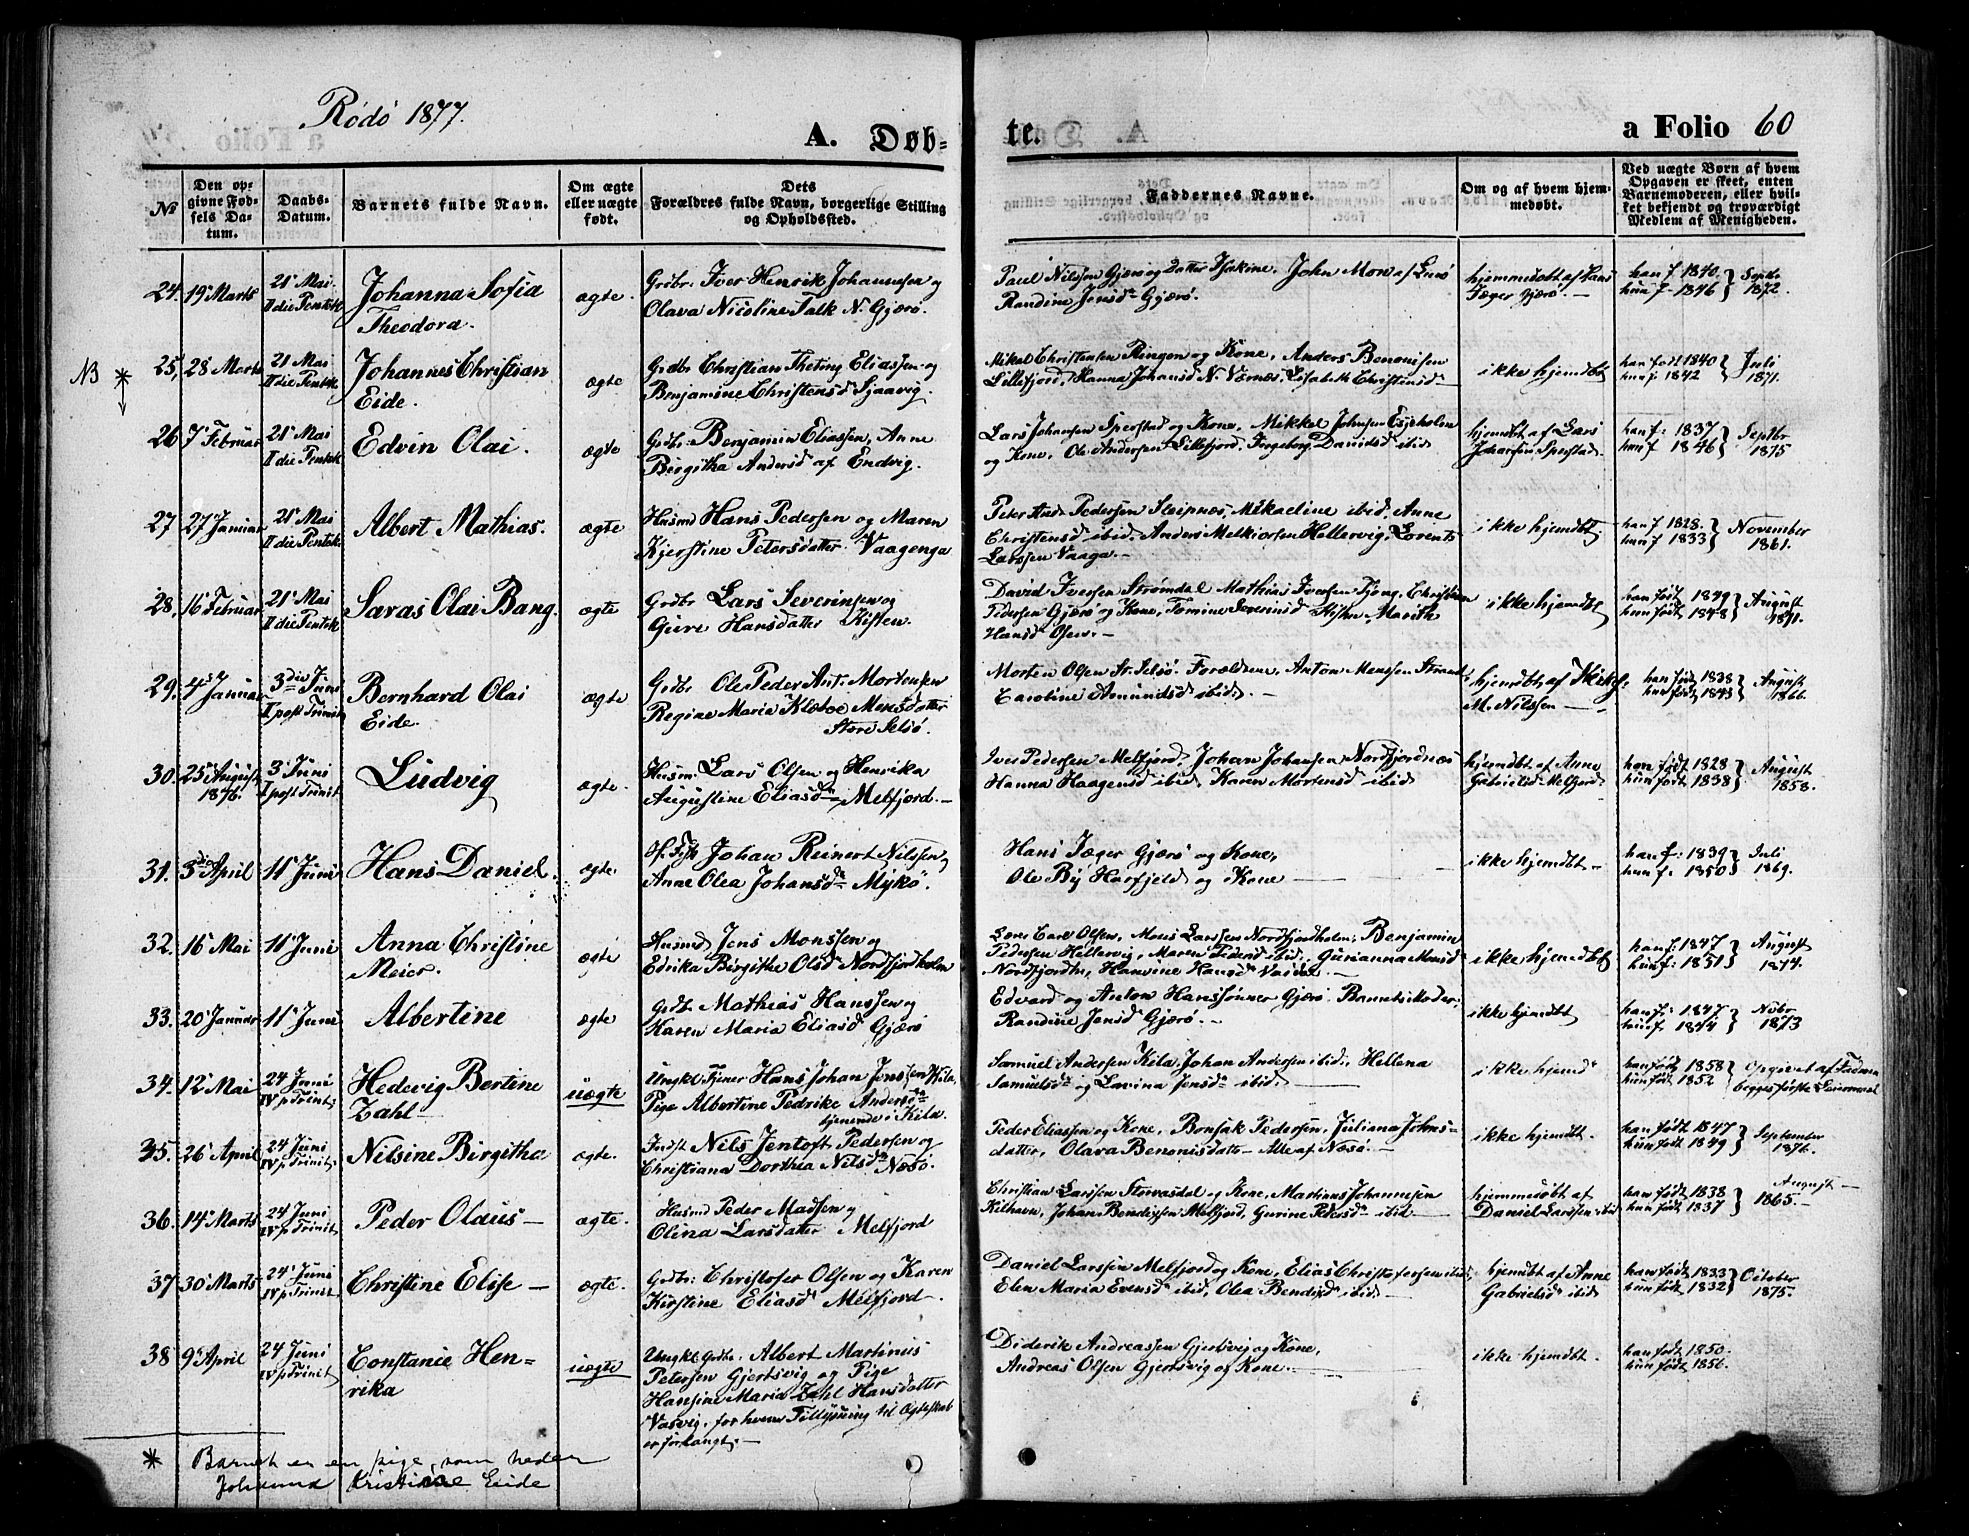 Rødø 1877.
A. Døb=
te.
a Folio 60
№
Den op=
givne Fød=
sels Da=
tum.
Daabs=
Datum.
Barnets fulde Navn.
Om ægte
eller uægte
født.
Dets
Forældres fulde Navn, borgerlige Stilling
og Opholdssted.
Faddernes Navne.
Om og af hvem hjem=
medøbt.
Ved uægte Børn af hvem
Opgaven er skeet, enten
Barnemoderen, eller hvil=
ket bekjendt og troværdigt
Medlem af Menigheden.
24. 19 Marts
21 Mai
II die Pentek
Johanna Sofia
Theodora.
ægte.
Grdbr. Iver Henrik Johannesen og
Olava Nicoline Falk N. Gjærø.
Paul Nilssen Gjærø og Datter Isakine. John Mon af Lurø
Randine Jensd Gjærø.
hjemmedøbt af Hans
Jæger Gjærø.
han f 1840.
hun f. 1846
Septb.
1872.
NB *
25, 28 Marts
21 Mai
II die Pentek
Johannes Christian
Eide.
ægte
Grdbr Christian Theting Eliassen og
Benjamine Christensd Sjaavig.
Mikal Christensen Ringen og Kone, Anders Benonisen
Lillefjord, Hanna Johansd N. Værnes, Lisabeth Christensd
ikke hjemdbt
han født 1840
hun f. 1842
Juli
1871.
26 7 Februar
21 Mai
II die Pentek
Edvin Olai.
ægte
Grdbr. Benjamin Eliassen, Anne
Birgitha Andersd af Endvig.
Lars Johansen Sperstad og Kone, Mikkel Johnsen Esjeholm
og Kone, Ole Andersen Lillefjord, Ingeborg Davidsd ibid
hjemdbt af Lars
Johansen Sperstad.
han f: 1837
hun f 1846
Septbr
1875
27 27 Januar
21 Mai
II die Pentek
Albert Mathias.
ægte
Husmd Hans Pedersen og Maren
Kjerstine Petersdatter Vaagenga
Peter And. Pedersen Sleipnæs, Mikaeline ibid. Anne
Christensd ibid. Anders Melkiorsen Hellervig, Lorents
Larssen Vaaga.
ikke hjemdbt
han f 1828.
hun f 1833
November
1861.
28, 16 Februar
21 Mai
II die Pentek
Saras Olai Bang.
ægte
Grdbr Lars Severinsen og
Gure Hansdatter Kisten.
David Iversen Strømdal Mathias Iversen Tjong, Christian
Pedersen Gjærø og Kone, Tomine Severinsd Kisten, Marith
Hansd Osen.
ikke hjemdbt
han født 1849
hun født 1848
August
1871.
29. 4 Januar
3die Juni
I post Trinit
Bernhard Olai
Eide.
ægte
Grdbr Ole Peder Ant. Mortensen
Regine Maria Klæboe Monsdatter
Store Selsø.
Morten Olsen St. Selsø. Forældrene, Anton Monssen Strand
Caroline Amundsd ibid.
hjemdøbt af
M. Nilssen
han født 1838
hun født 1843
August
1866.
30. 25 August
1876.
3 Juni
I post Trinit
Ludvig
ægte.
Husm. Lars Olsen og Henrika
Augustine Eliasd Melfjord.
Iver Pedersen Melfjord, Johan Johansen Nordfjordnæs
Hanna Haagensd ibid, Karen Mortensd ibid
hjemdbt af Anne
Gabrielsd Melfjord
han født 1828
hun født 1838
August
1858.
31. 3die April
11 Juni
Hans Daniel.
ægte.
Johan Reinert Nilssen og
Anne Olea Johansd Mykø.
Hans Jæger Gjærø og Kone,
Ole By Harfjeld og Kone
ikke hjemdbt
han f. 1839
hun f. 1850
Juli
1869.
32. 16 Mai
11 Juni
Anna Christine
Meier.
ægte
Husmd Jens Monssen og
Edrika Birgithe Olsd Nordfjordholm
Lorens Carl Olsen, Mons Larssen Nordfjordholm, Benjamin
Pedersen Hellervig, Maren Pedersd ibid, Gurianna Monsd
Nordfjordh, Hanvine Hansd
ikke hjemdbt
han f: 1847
hun f: 1851
August
1874.
33. 20 Januar
11 Juni
Albertine
ægte
Grdb. Mathias Hanssen og
Karen Maria Eliasd Gjærø
Edvard og Anton Hanssønner Gjærø. Barnets Moder.
Randine Jensd Gjærø.
ikke hjemdbt
han f: 1847
hun f 1844
Nvbr.
1873
34. 12 Mai
24 Juni
IV p Trinit
Hedevig Bertine
Zahl
uægte
Ungkl Tjener Hans Johan Jenssen Kila,
Pige Albertine Pedrike Andersd
tjenende i Kila
Samuel Andersen Kila, Johan Andersen ibid. Hellena
Samuelsd og Lovina Jensd ibid.
ikke hjemd
han født 1858
hun født 1852
Opgivet af Faderen
begges første Leiermaal
35. 26 April
24 Juni
IV p Trinit
Nilsine Birgitha
ægte.
Indst Nils Jentoft Pedersen og
Christiana Dorthea Nilsd Næsø.
Peder Eliassen og Kone, Bonsak Pedersen, Juliana Johns=
datter, Olava Benonisdatter Alle af Næsø.
ikke hjemdbt.
han født 1847
hun født 1849
September
1876.
36. 14 Marts
24 Juni
IV p Trinit
Peder Olaus
ægte.
Husmd Peder Madsen og
Olina Larsdatter Melfjord
Christian Larssen Storvasdal og Kone, Martinus Johannesen
Kilhavn, Johan Bendixsen Melfjord, Gurine Pedersd ibid
hjemmedøbt af
Daniel Larssen ibid
han født 1838
hun født 1837
August
1865.
37 30 Marts
24 Juni
IV p Trinit
Christine Elise
ægte.
Grdbr: Christofer Olsen og Karen
Kirstine Eliasd Melfjord.
Daniel Larssen Melfjord og Kone, Elias Christofersen ibid,
Elen Maria Evensd ibid, Olea Bendixd ibid
hjemdbt af Anne
Gabrielsd ibid
han født 1833
hun født 1832
October
1875.
38 9 April
24 Juni
IV p Trinit
Constance Hen=
rika
uægte
Ungkl Grdbr. Albert Martinus
Petersen Gjertsvig og Pige
Hansine Maria Zahl Hansdatter
Vasvig, for hvem Tillysning til Ægteskab
er forlangt.
Diderik Andreassen Gjertsvig og Kone,
Andreas Olsen Gjertsvig og Kone.
ikke hjemdbt.
han født 1850.
hun født 1856.
* Barnet er en pige, som heder
Johanna Kristianne Eide